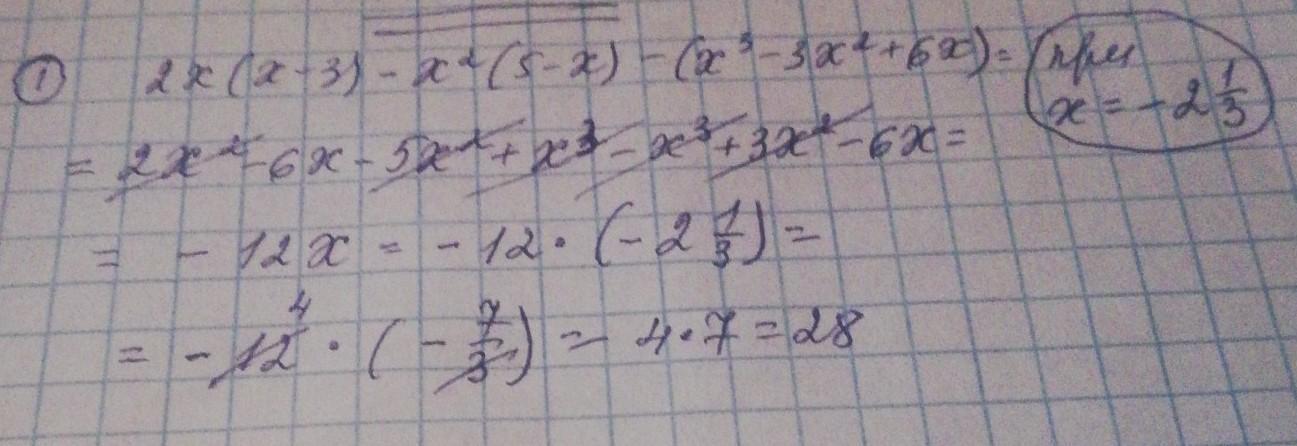 ① 2x(x-3) - x²(5-x) - (x³-3x²+6x) = при x = -2 1/3
= 2x² - 6x - 5x² + x³ - x³ + 3x² - 6x =
= - 12x = - 12 · (- 2 1/3) =
= - 12 4 · (- 7/3) = 4·7 = 28